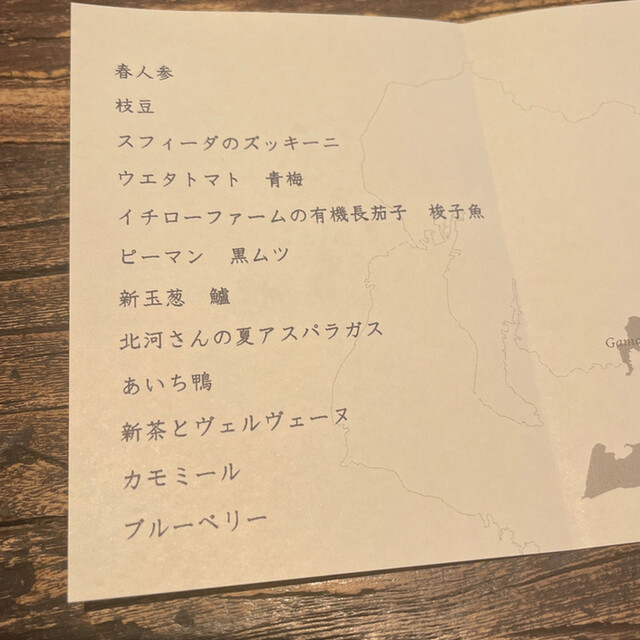 春人参
枝豆
スフィーダのズッキーニ
ウエタトマト　青梅
イチローファームの有機長茄子　梭子魚
ピーマン　黒ムツ
新玉葱　鱸
北河さんの夏アスパラガス
あいち鴨
新茶とヴェルヴェーヌ
カモミール
ブルーベリー